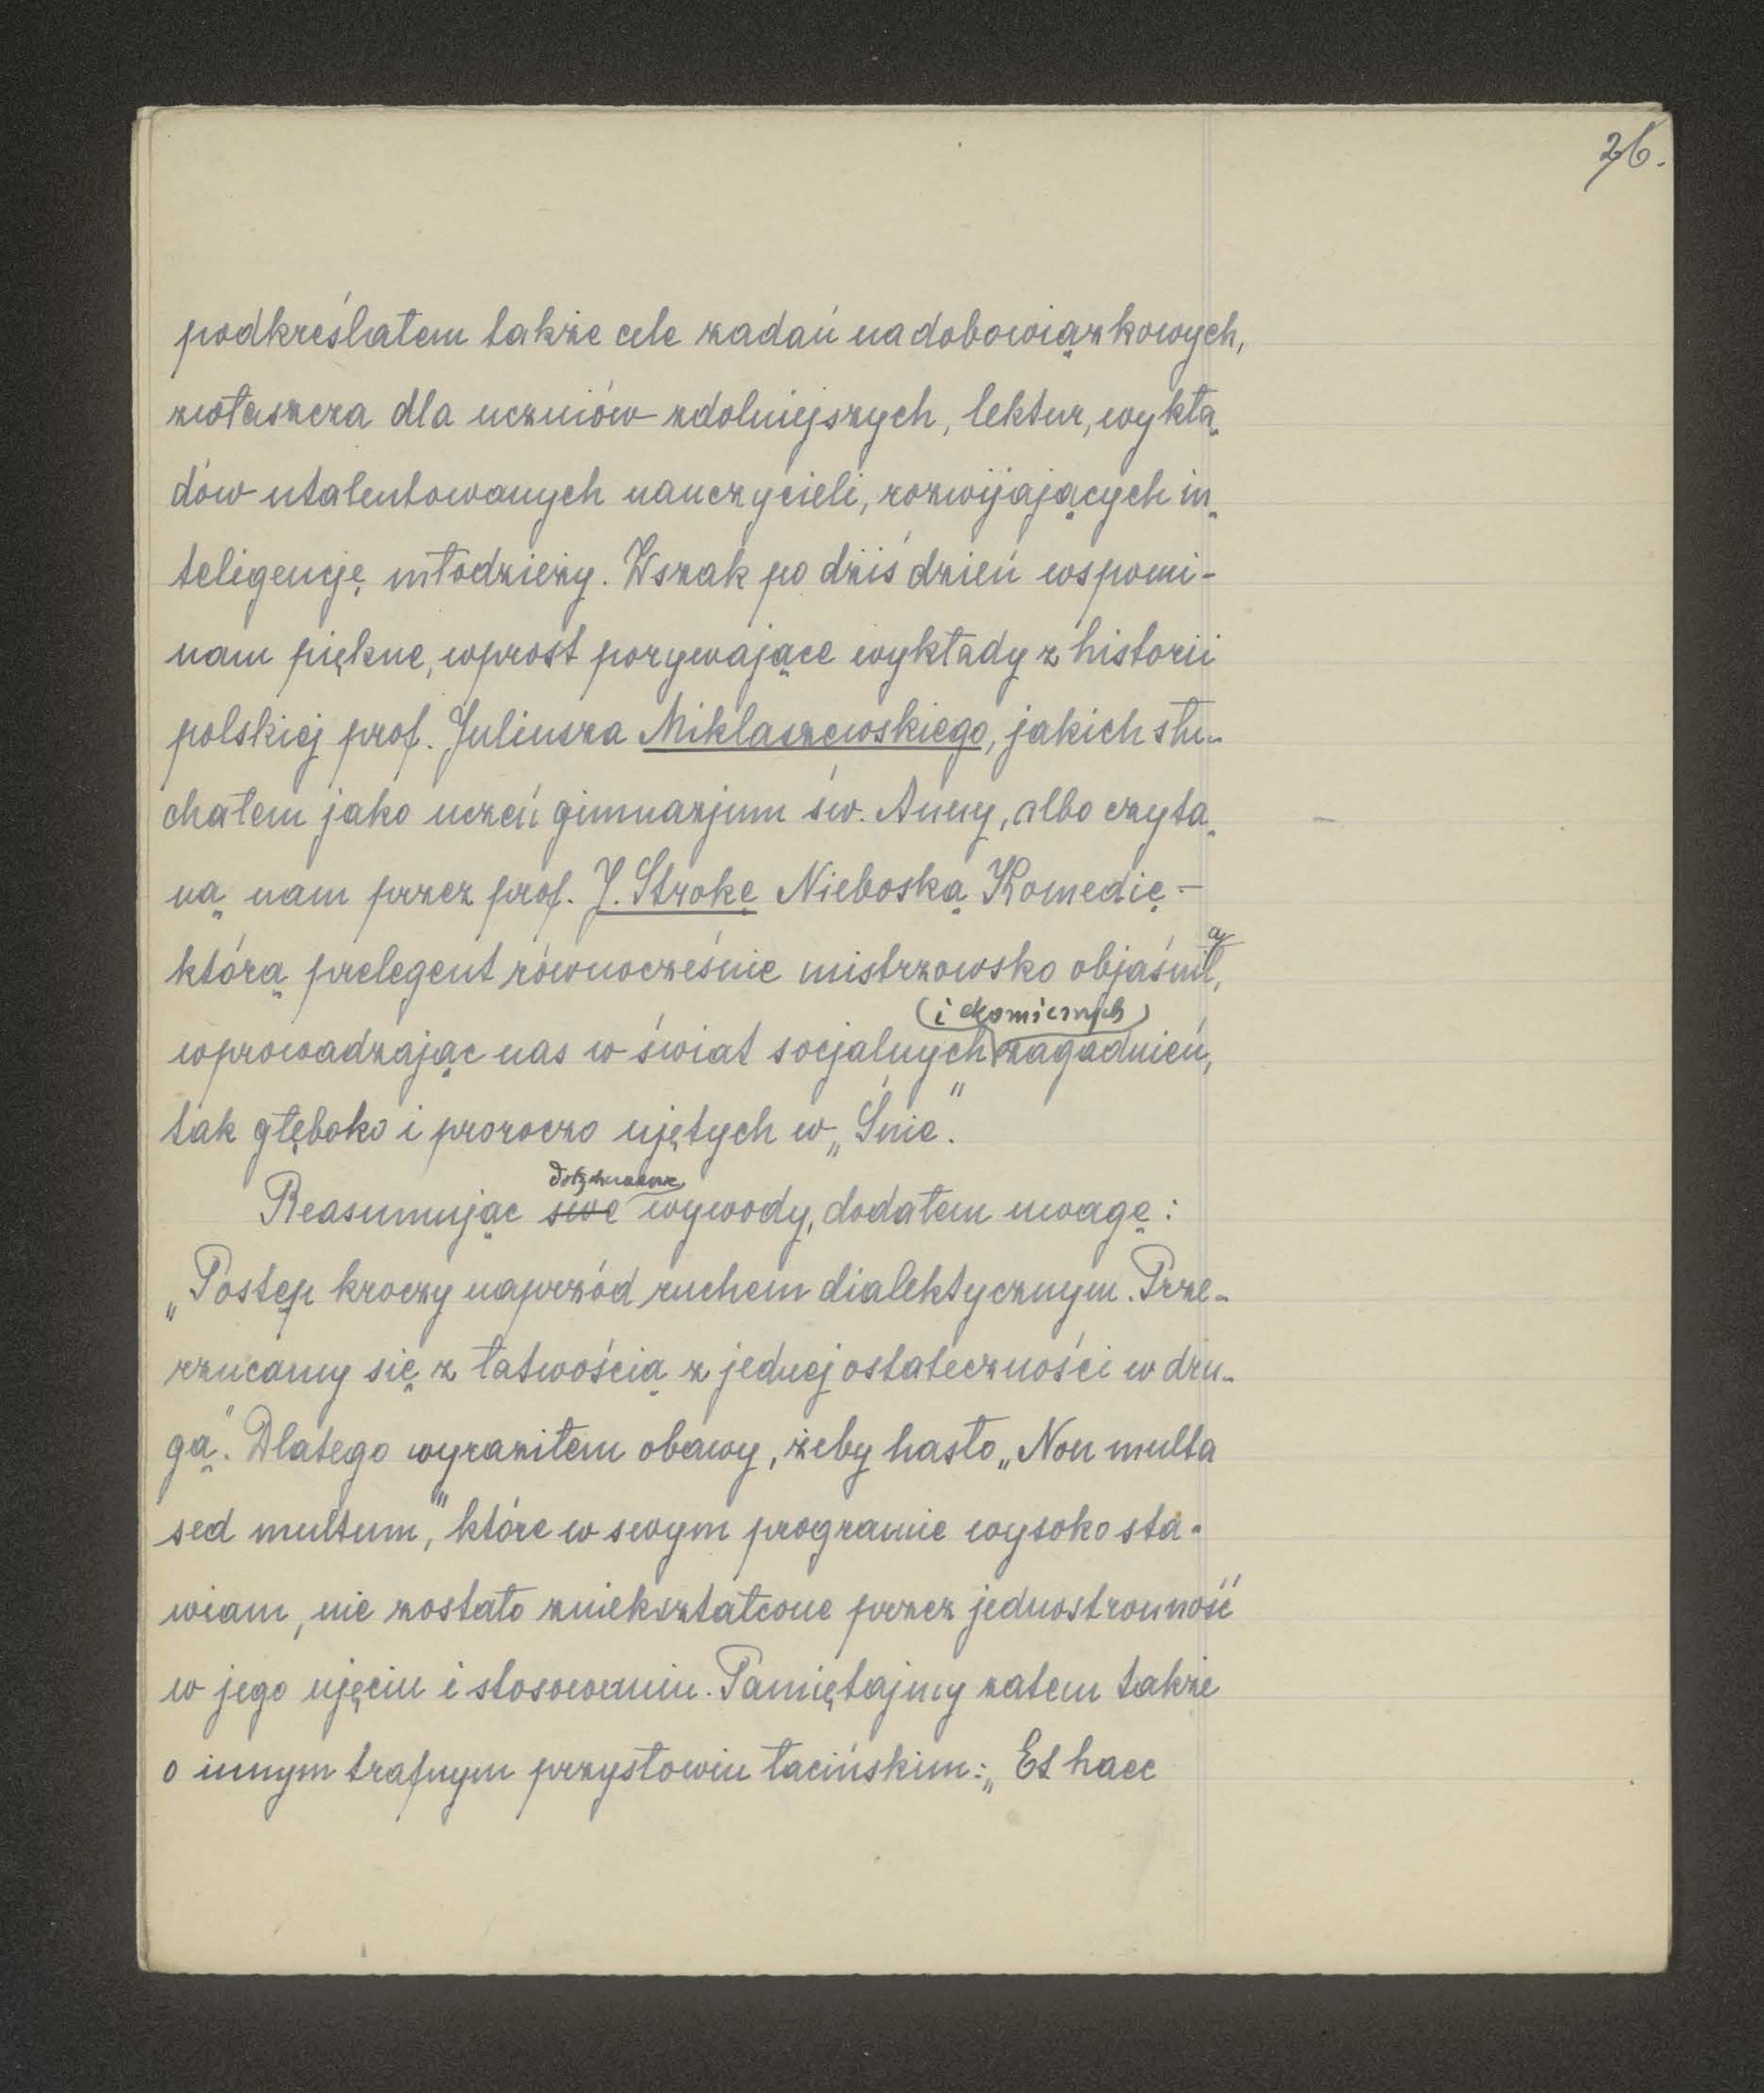 26.
podkreślałem także cele zadań nadobowiązkowych,
zwłaszcza dla uczniów zdolniejszych, lektur, wykła-
dów utalentowanych nauczycieli, rozwijających in-
teligencję młodzieży. Wszak po dziś dzień wspomi-
nam piękne, wprost porywające wykłady z historii
polskiej prof. Juliusza Miklaszewskiego, jakich słu-
chałem jako uczeń gimnazjum św. Anny, albo czyta-
ną nam przez prof. J. Strokę Nieboską Komedię –
a
którą prelegent równocześnie mistrzowsko objaśnił,
(i ekomicznych)
wprowadzając nas w świat socjalnych zagadnień,
tak głęboko i proroczo ujętych w „Śnie”.
dotychczasowe
Reasumując swe wywody, dodałem uwagę:
„Postęp kroczy naprzód ruchem dialektycznym. Prze-
rzucamy się z łatwością z jednej ostateczności w dru-
gą”. Dlatego wyraziłem obawy, żeby hasło „Non multa
sed multum”, które w swym programie wysoko sta-
wiam, nie zostało zniekształcone przez jednostronność
w jego ujęciu i stosowaniu. Pamiętajmy zatem także
o innym trafnym przysłowiu łacińskim: „Et haec